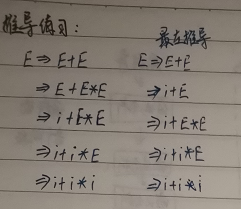 推导练习：
最左推导
E⇒E+E E⇒E+E
⇒E+E*E ⇒i+E
⇒i+E*E ⇒i+E*E
⇒i+i*E ⇒i+i*E
⇒i+i*i ⇒i+i*i